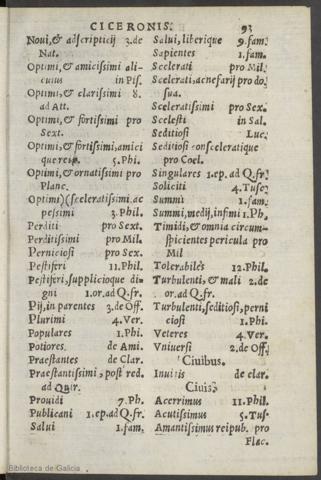 CICERONIS. 93
Noui, & adscripticij 3. de
Nat.
Optimi, & amicissimi ali-
cuius in Pis.
Optimi, & clarissimi 8.
ad Att.
Optimi, & fortissimi pro
Sext.
Optimi, & fortissimi, amici
que reip. 5. Phi.
Optimi, & ornatissimi pro
Planc.
Optimi)(sceleratissimi, ac
pessimi 3. Phil.
Perditi pro Sext.
Perditissimi pro Mil.
Perniciosi pro Sex.
Pestiferi 11. Phil.
Pestiferi, supplicioque di-
gni 1. or. ad Q. fr.
Pij, in parentes 3. de Off.
Plurimi 4. Ver.
Populares 1. Phi.
Potiores. de Ami.
Praestantes de Clar.
Praestantissimi, post red.
ad Quir.
Prouidi 7. Ph.
Publicani 1. ep. ad Q. fr.
Salui 1. fam.
Salui, liberique 9. fam.
Sapientes 1. fam.
Scelerati pro Mil.
Scelerati, ac nefarij pro do.
sua.
Sceleratissimi pro Sex.
Scelesti in Sal.
Seditiosi Luc.
Seditiosi consceleratique
pro Coel.
Singulares 1. ep. ad Q. fr.
Soliciti 4. Tusc.
Summi 1. fam.
Summi, medij, infimi 1. Ph.
Timidi, & omnia circum-
spicientes pericula pro
Mil
Tolerabiles 12. Phil.
Turbulenti, & mali 2. de
or. ad Q. fr.
Turbulenti, seditiosi, perni
ciosi 1. Phi.
Veteres 4. Ver.
Vniuersi 2. de Off.
Ciuibus.
Inuitis de clar.
Ciuis
Acerrimus 11. Phil.
Acutissimus 5. Tus.
Amantissimus reipub. pro
Flac.
Biblioteca de Galicia